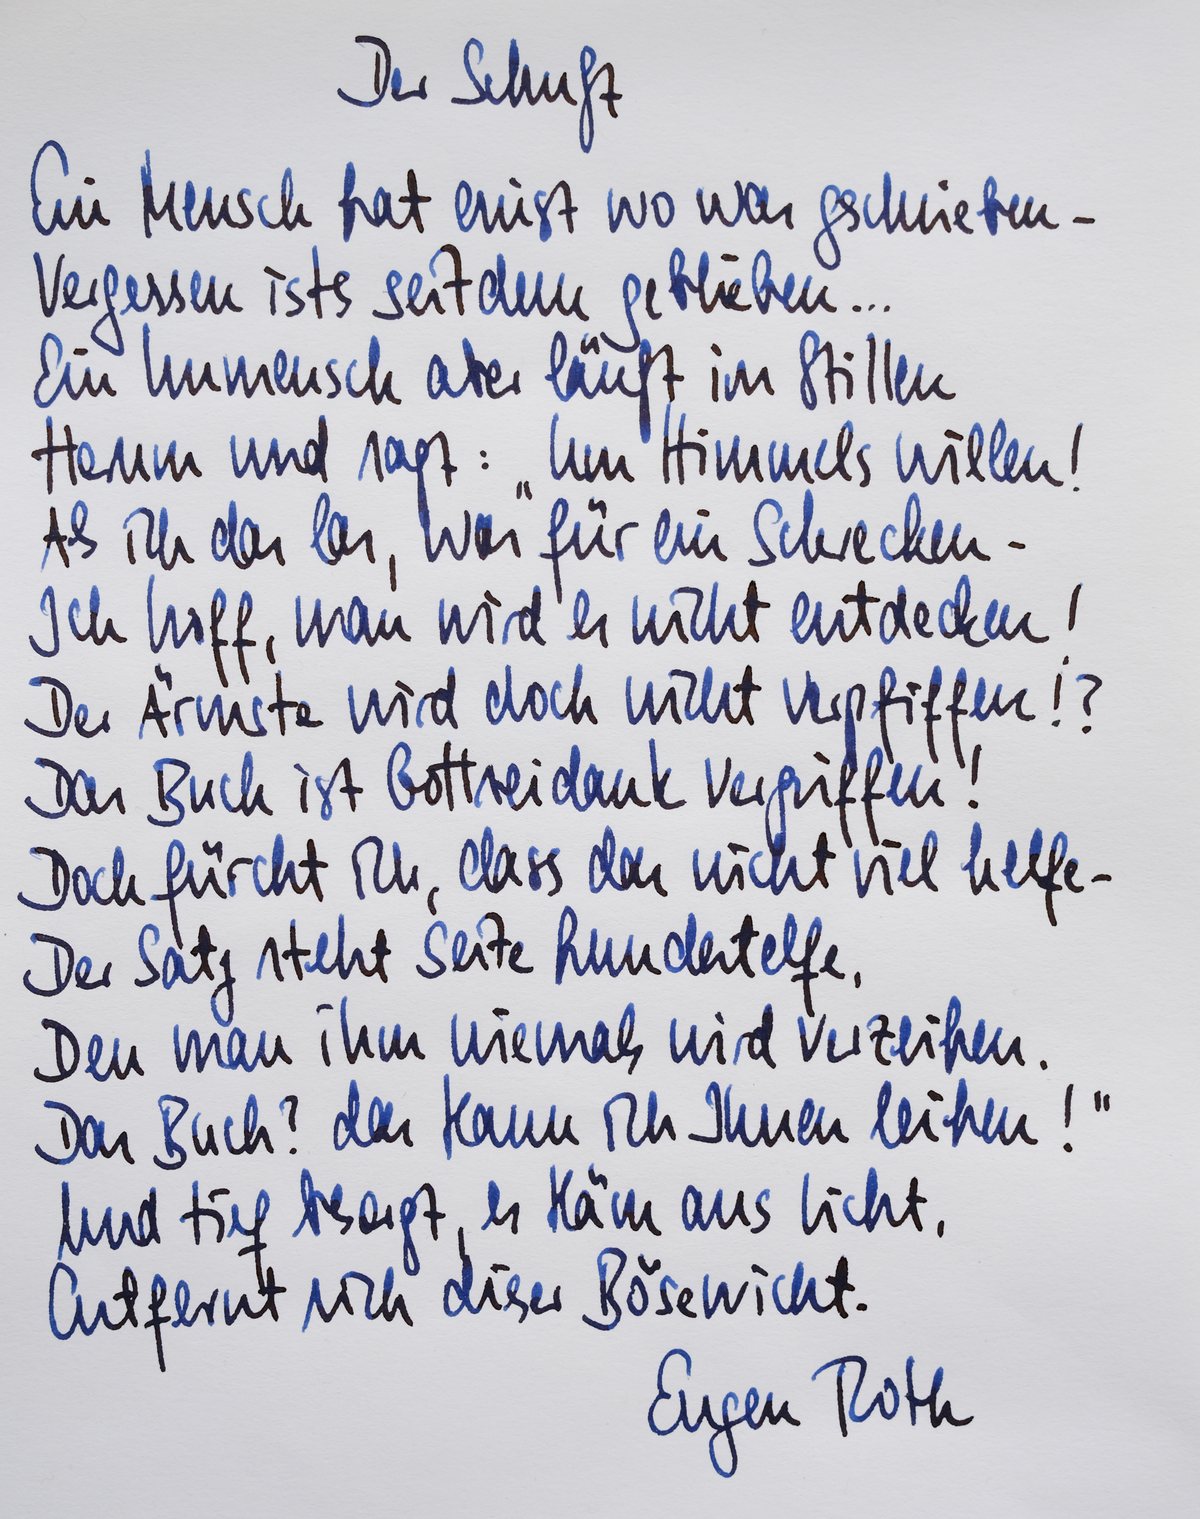 Der Schuft
Ein Mensch hat einst wo was geschrieben -
Vergessen ists seitdem geblieben...
Ein Unmensch aber läuft im Stillen
Herum und sagt: „Um Himmels willen!
Als ich das las, war für ein Schrecken -
Ich hoff, man wird es nicht entdecken!
Der Ärmste wird doch nicht verpfiffen!?
Das Buch ist Gottseidank vergriffen!
Doch fürcht ich, dass das nicht viel helfe-
Der Satz steht Seite hundertelfe,
Den man ihm niemals wird verzeihen.
Das Buch? das kann ich Ihnen leihen!"
Und tief besorgt, es käm ans Licht,
Entfernt sich dieser Bösewicht.
Eugen Roth